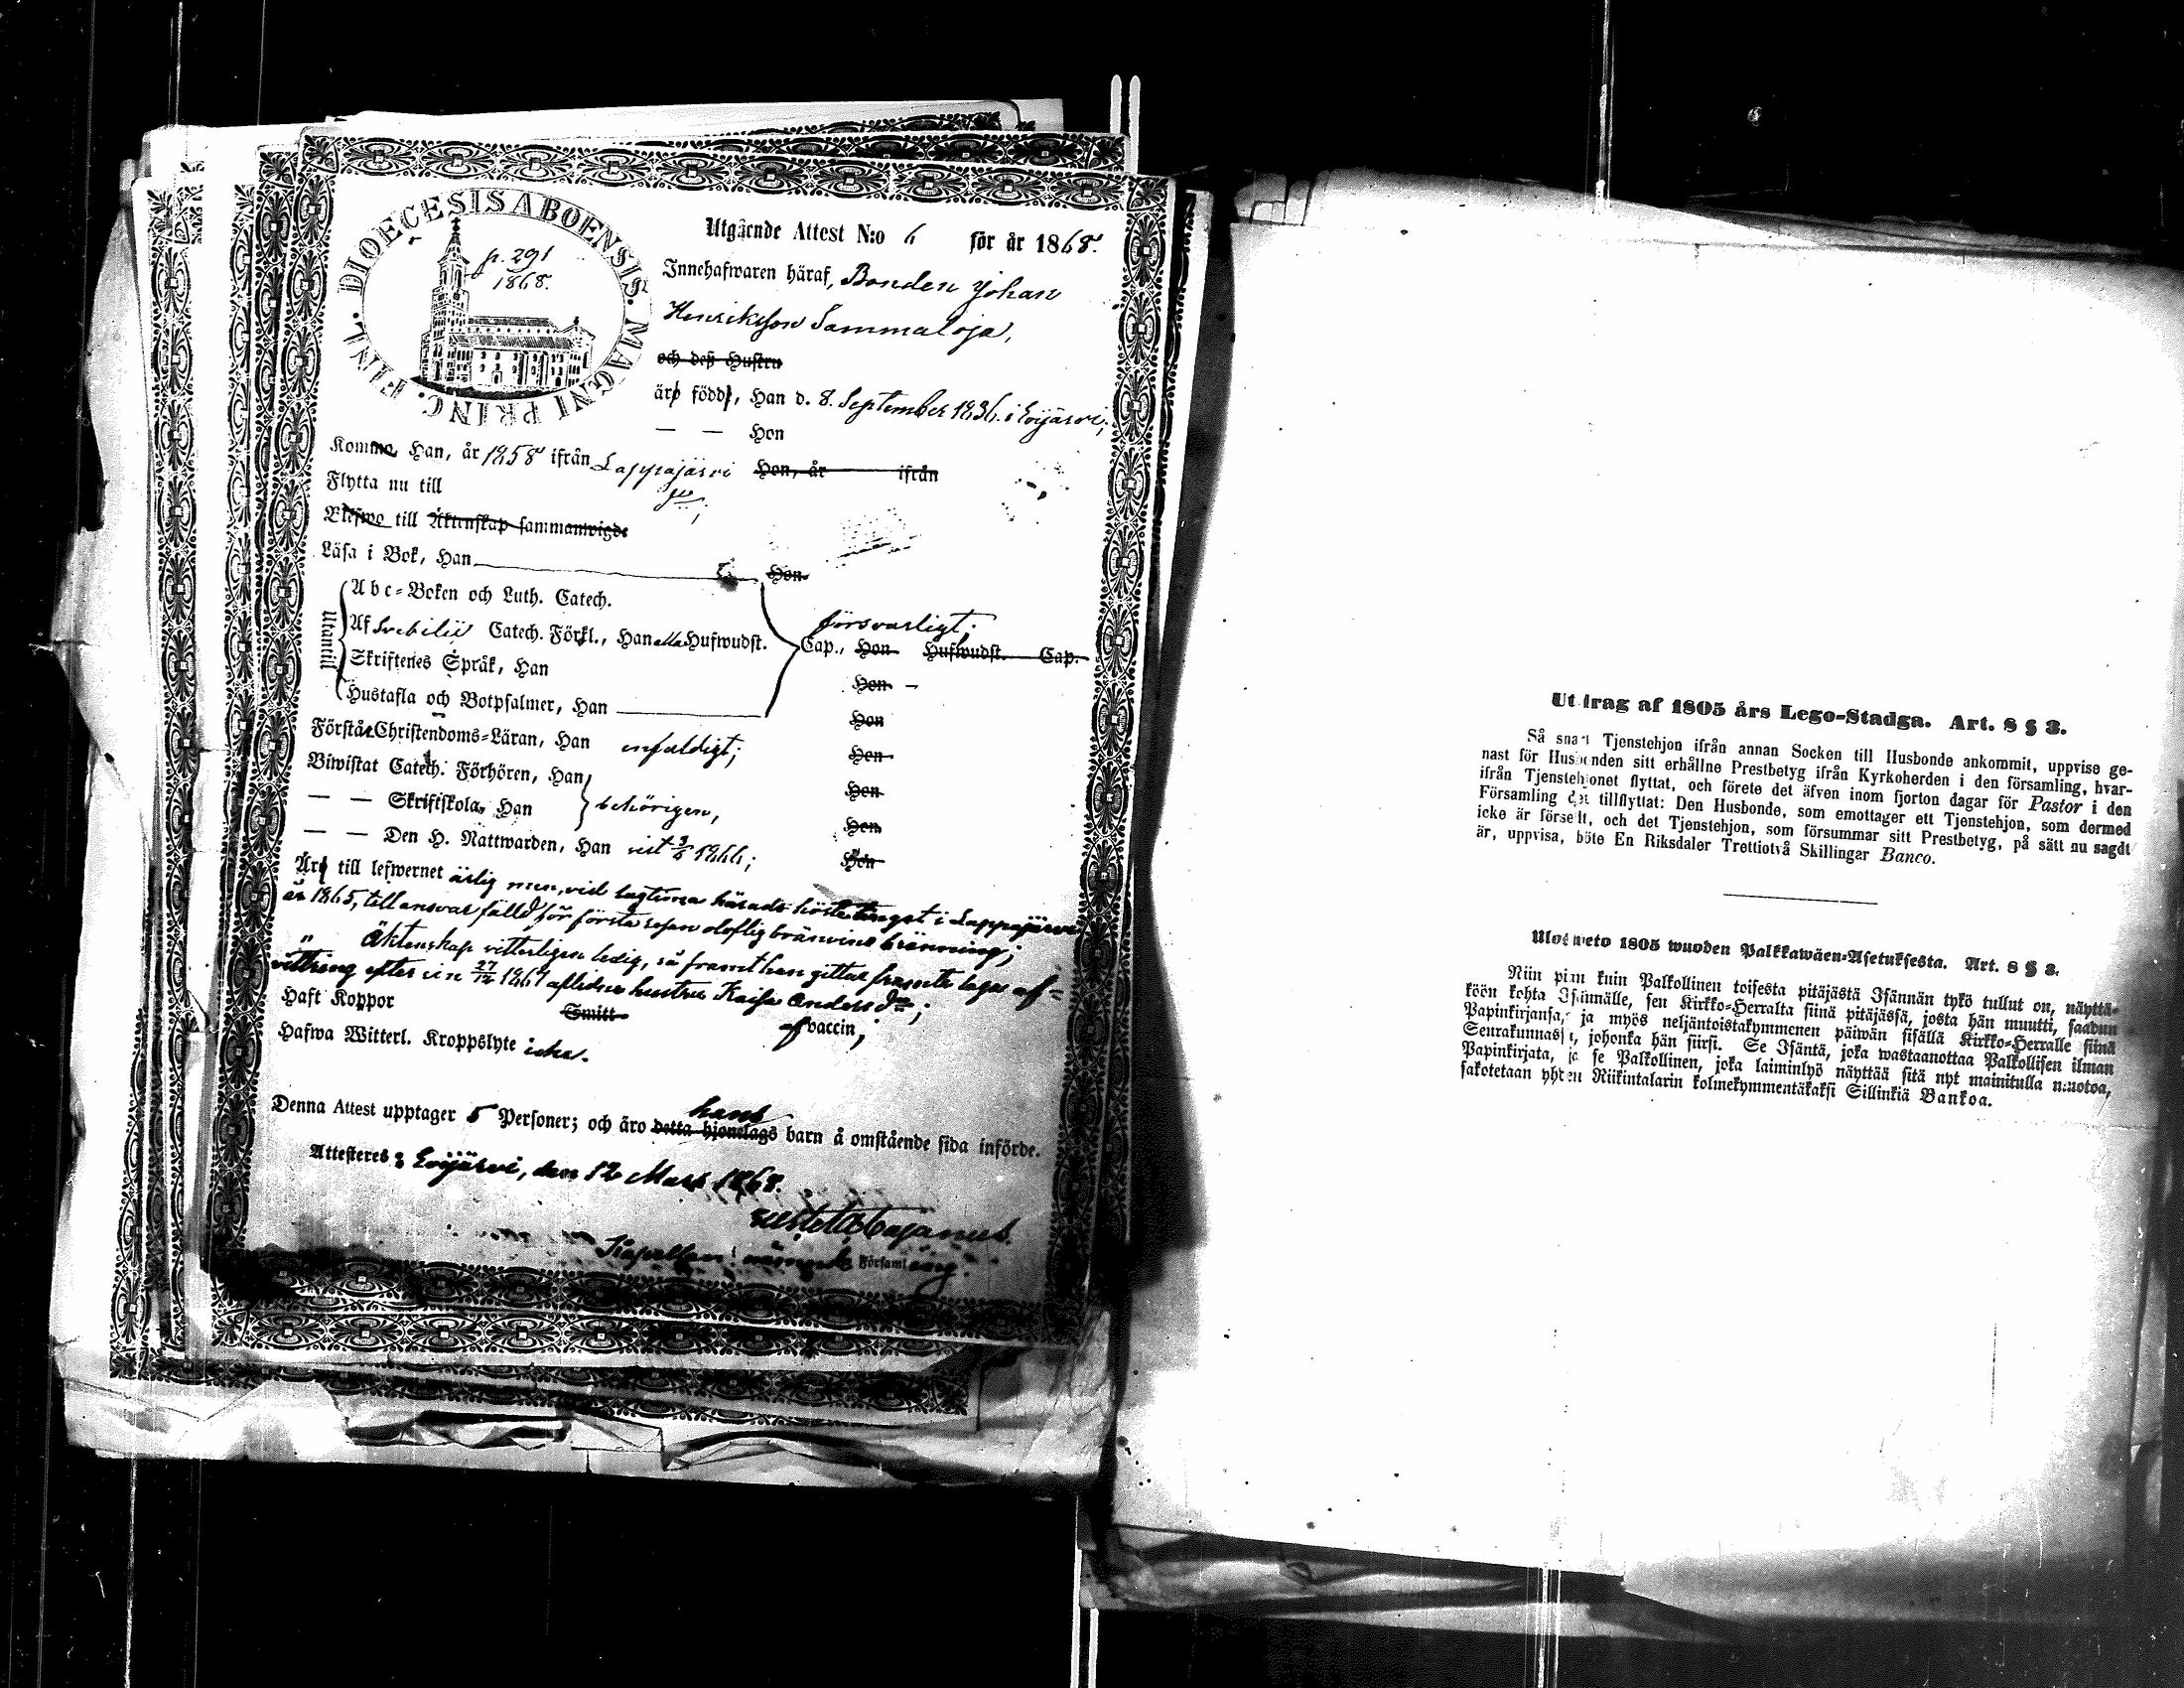 DIOECESIS ABOENSIS. MAGNI PRINC. FINL.
p. 291
1868.
Utgående Attest N:o 6 för år 1868.
Innehafwaren häraf, Bonden Johan
Henriksson Sammaloja,
och deß Hustru
äro född, Han d. 8. September 1836. i Evijärvi,
— — Hon
Komme Han, år 1858 ifrån Lappajärvi Hon, år ifrån
Flytta nu till
Blefwo till Äktenskap sammanwigde
Läsa i Bok, Han Hon
Utantill
Abc-Boken och Luth. Catech.
försvarligt;
Af Svebilii Catech. Förkl., Han alla Hufwudst. Cap., Hon Hufwudst. Cap.
Skriftenes Språk, Han Hon —
Hustafla och Botpsalmer, Han Hon
Förstår Christendoms-Läran, Han enfaldigt; Hon
Biwistat Catech. Förhören, Han Hon
— — Skriftskola, Han behörigen, Hon
— — Den H. Nattwarden, Han sist 3/6 1866; Hon
Äro till lefwernet ärlig men, vid lagtima härads hösteting i Lappajärvi
år 1865, till ansvar fälld för första resan oloflig bränvins bränning;
" Äktenskap vitterligen ledig, så framt han gittar framte laga af-
vittring efter sin 27/12 1867 aflidna hustru Kaisa Anders dr;
Haft Koppor Smitt vaccin;
Hafwa Witterl. Kroppslyte icke.
Denna Attest upptager 5 Personer; och äro detta hjonelags hans barn å omstående sida införde.
Attesteres: Evijärvi, den 12 Mars 1868.
Cajanus.
Kapellan i nämnde Församling.
Utdrag af 1805 års Lego-Stadga. Art. 8 § 3.
Så snart Tjenstehjon ifrån annan Socken till Husbonde ankommit, uppvise ge-
nast för Husbonden sitt erhållne Prestbetyg ifrån Kyrkoherden i den församling, hvar-
ifrån Tjenstehjonet flyttat, och förete det äfven inom fjorton dagar för Pastor i den
Församling det tillflyttat: Den Husbonde, som emottager ett Tjenstehjon, som dermed
icke är försedt, och det Tjenstehjon, som försummar sitt Prestbetyg, på sätt nu sagdt
är, uppvisa, böte En Riksdaler Trettiotvå Skillingar Banco.
Ulosweto 1805 wuoden Palkkawäen-Asetuksesta. Art. 8 § 3.
Niin pian kuin Palkollinen toisesta pitäjästä Isännän tykö tullut on, näyttä-
köön kohta Isännälle, sen Kirkko-Herralta siinä pitäjässä, josta hän muutti, saadun
Papinkirjansa, ja myös neljäntoistakymmenen päiwän sisällä Kirkko-Herralle siinä
Seurakunnassa, johonka hän siirsi. Se Isäntä, joka wastaanottaa Palkollisen ilman
Papinkirjata, ja se Palkollinen, joka laiminlyö näyttää sitä nyt mainitulla muotoa,
sakotetaan yhten Riikintalarin kolmekymmentäkaksi Sillinkiä Bankoa.